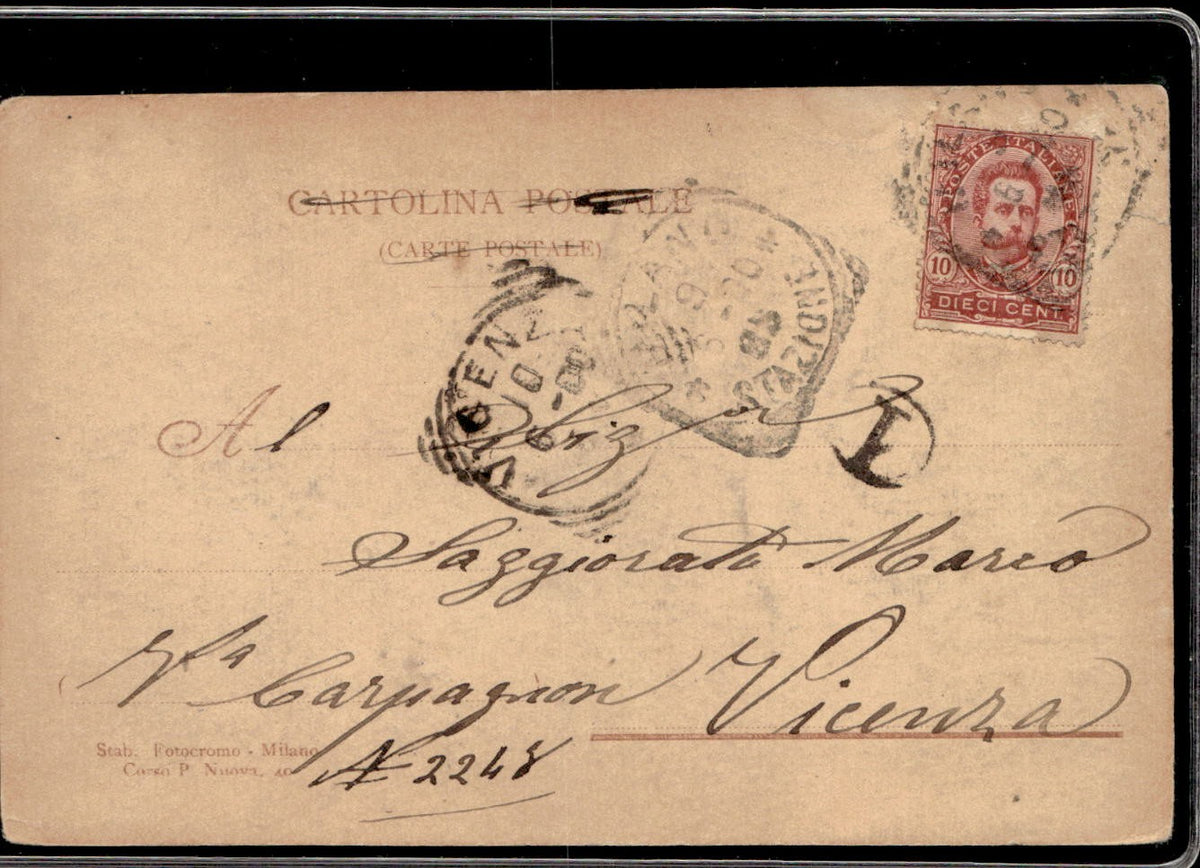 CARTOLINA POSTALE
(CARTE POSTALE)
POSTE ITALIANE
10 10
DIECI CENT.
MILANO
VICENZA
10
Al Sigr
T
Saggiorati Marco
Va Carpagnon Vicenza
Stab. Fotocromo - Milano
Corso P. Nuova, 40
N 2248